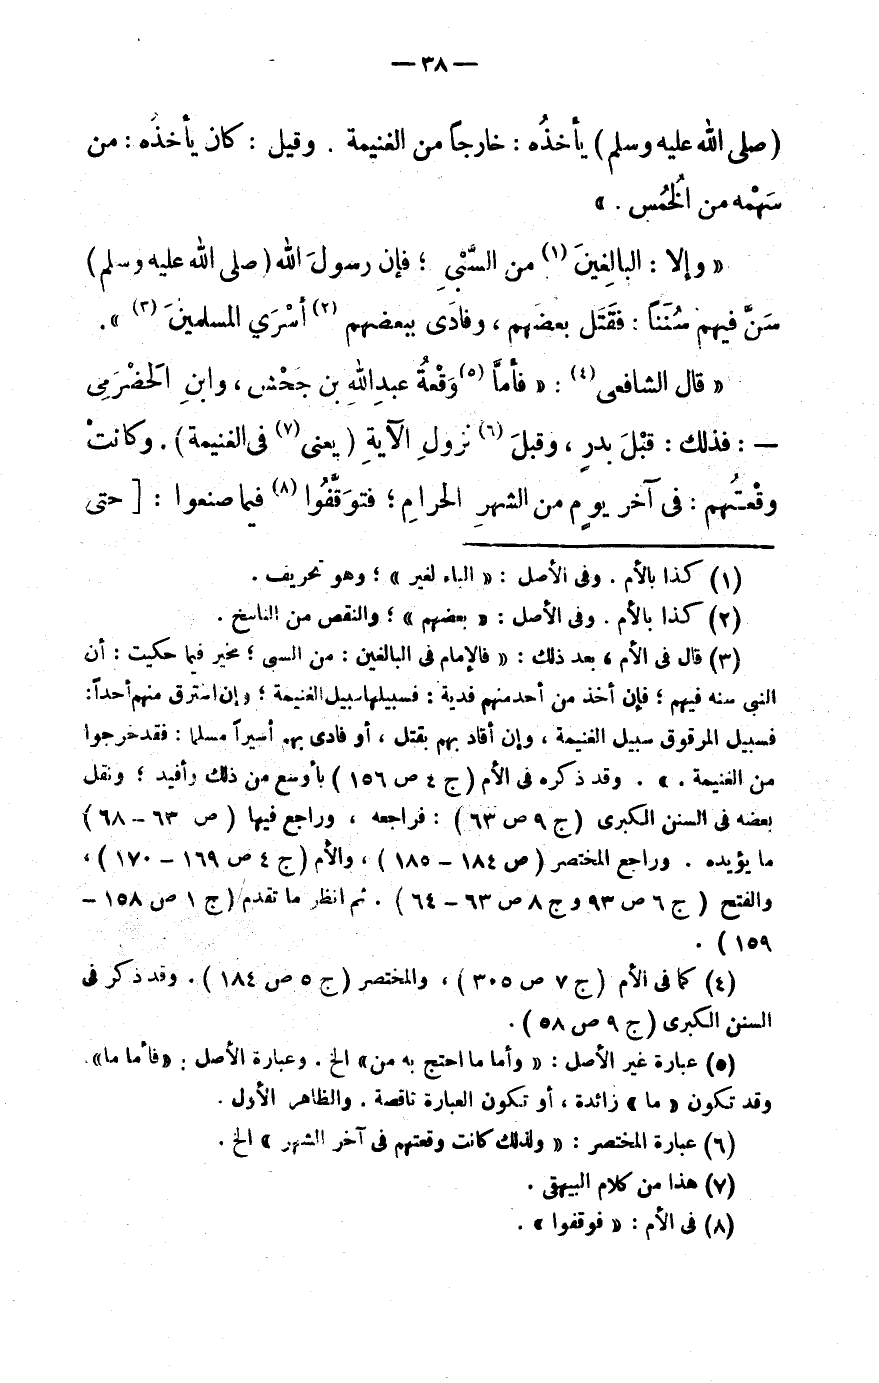 — ٣٨ —
(صلى الله عليه وسلم) يأخذُه : خارجاً من الغنيمة . وقيل : كان يأخذُه : من
سَهْمه من الُخمُس . »
« وإلا : البالغِينَ (١) من السَّبْىِ ؛ فإن رسولَ الله (صلى الله عليه وسلم)
سَنَّ فيهم سُنَناً : فقَتَل بعضَهم ، وفادَى ببعضهم (٢) أسْرَي المسلمينَ (٣) » .
« قال الشافعى (٤) : « فأمَّا (٥) وَقْعةُ عبدِالله بن جَحْش ، وابنِ الَحضْرَمِى
— : فذلك : قبْلَ بدرٍ ، وقبلَ (٦) نزولِ الآيةِ ( يعنى (٧) فى الغنيمة ) . وكانتْ
وقْعتُهم : فى آخر يومٍ من الشهرِ الحرامِ ؛ فتوَقَّفُوا (٨) فيما صنعوا : [ حتى
(١) كذا بالأم . وفى الأصل : « الباء لغير » ؛ وهو تحريف .
(٢) كذا بالأم . وفى الأصل : « بعضهم » ؛ والنقص من الناسخ .
(٣) قال فى الأم ، بعد ذلك : « فالإمام فى البالغين : من السبى ؛ مخير فيما حكيت : أن
النبي سنه فيهم ؛ فإن أخذ من أحد منهم فدية : فسبيلها سبيل الغنيمة ؛ وإن استرق منهم أحداً :
فسبيل المرقوق سبيل الغنيمة ، وإن أقاد بهم بقتل ، أو فادى بهم أسيراً مسلما : فقد خرجوا
من الغنيمة . » . وقد ذكره فى الأم (ج ٤ ص ١٥٦ ) بأوسع من ذلك وأفيد ؛ ونقل
بعضه فى السنن الكبرى (ج ٩ ص ٦٣ ) : فراجعه ، وراجع فيها ( ص ٦٣ – ٦٨ )
ما يؤيده . وراجع المختصر ( ص ١٨٤ – ١٨٥ ) ، والأم (ج ٤ ص ١٦٩ – ١٧٠ ) ،
والفتح ( ج ٦ ص ٩٣ و ج ٨ ص ٦٣ – ٦٤ ) . ثم انظر ما تقدم (ج ١ ص ١٥٨ –
١٥٩ ) .
(٤) كما فى الأم (ج ٧ ص ٣٠٥ ) ، والمختصر (ج ٥ ص ١٨٤ ) . وقد ذكر فى
السنن الكبرى (ج ٩ ص ٥٨ ) .
(٥) عبارة غير الأصل : « وأما ما احتج به من» الخ . وعبارة الأصل : «فأما ما» .
وقد تكون « ما » زائدة ، أو تكون العبارة ناقصة . والظاهر الأول .
(٦) عبارة المختصر : « ولذلك كانت وقعتهم فى آخر الشهر » الخ .
(٧) هذا من كلام البيهقى .
(٨) فى الأم : « فوقفوا » .